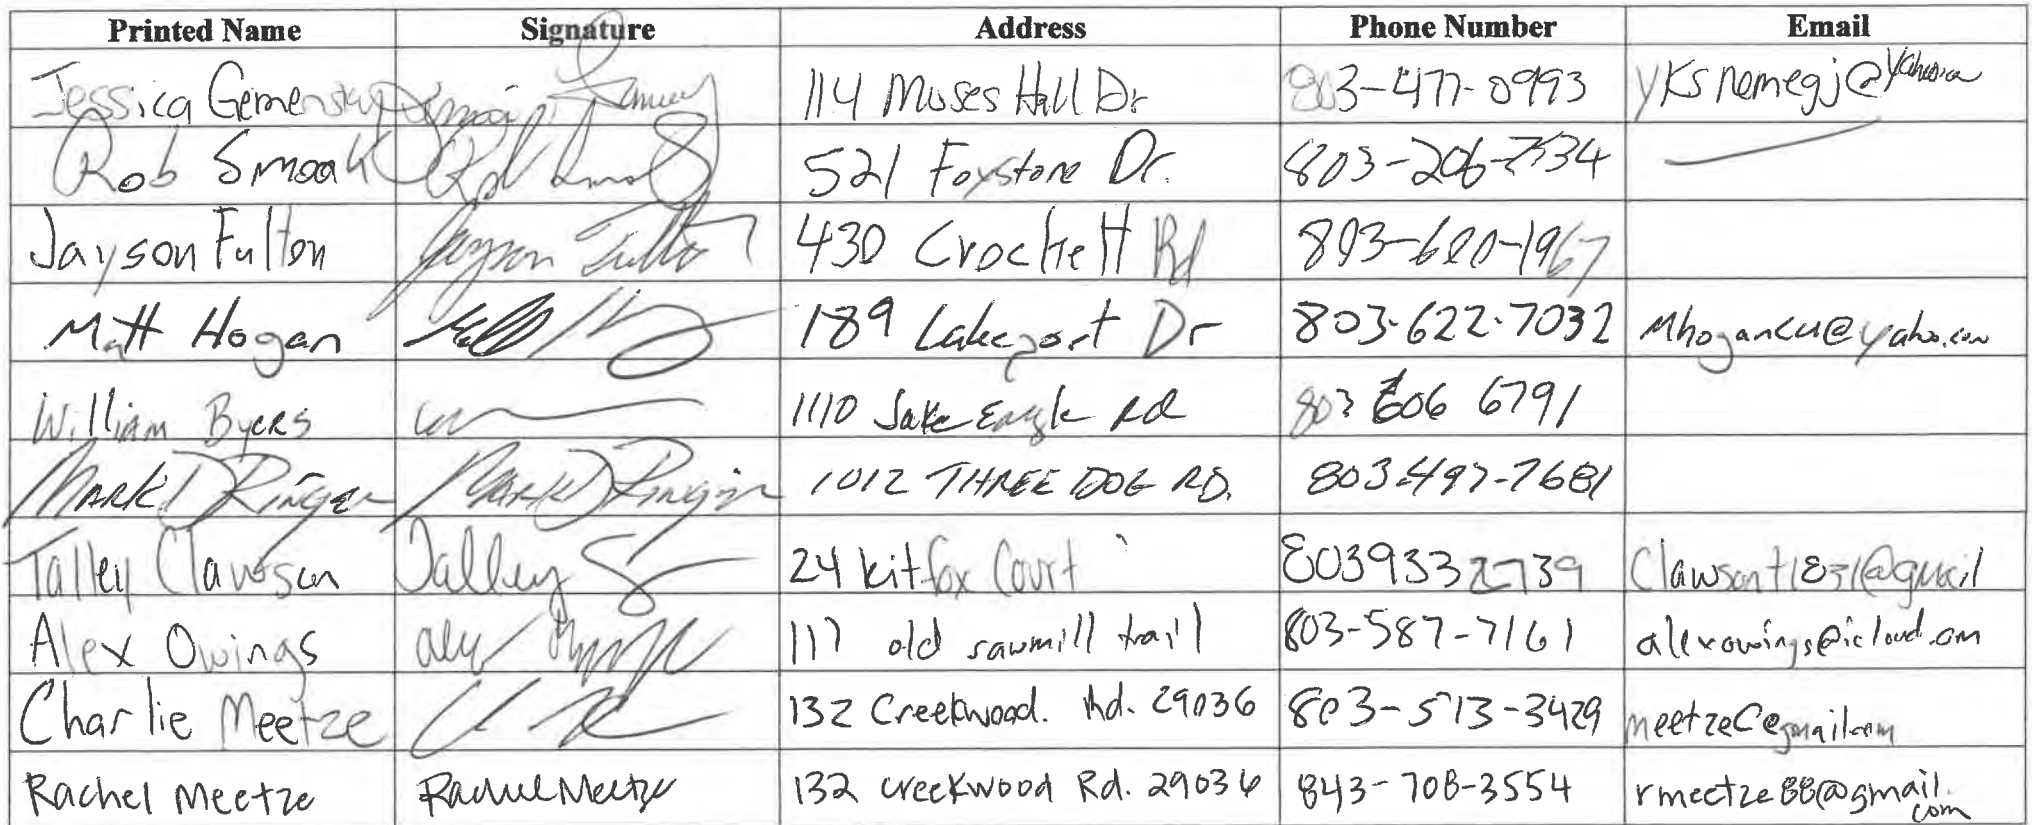 Printed Name Signature Address Phone Number Email
Jessica Gemensky 114 Moses Hall Dr 803-477-0993 yksnemegj@yahoo.com
Rob Smoak Rob Smoak 521 Foxstone Dr. 803-206-7334
Jayson Fulton Jayson Fulton 430 Crockett Rd 803-600-1967
Matt Hogan 189 Lakeport Dr 803-622-7032 Mhogancu@yahoo.com
William Byers 1110 Jake Eargle Rd 803 606 6791
Mark D Ringer Mark D Ringer 1012 THREE DOG RD. 803-497-7681
Talley Clawson Talley 24 kit fox Court 8039332739 Clawsont1831@gmail
Alex Owings Alex 117 old sawmill trail 803-587-7161 alexowings@icloud.com
Charlie Meetze 132 Creekwood. Rd. 29036 803-573-3429 meetzec@gmail.com
Rachel Meetze Rachel Meetze 132 creekwood Rd. 29036 843-708-3554 rmeetze88@gmail.
com